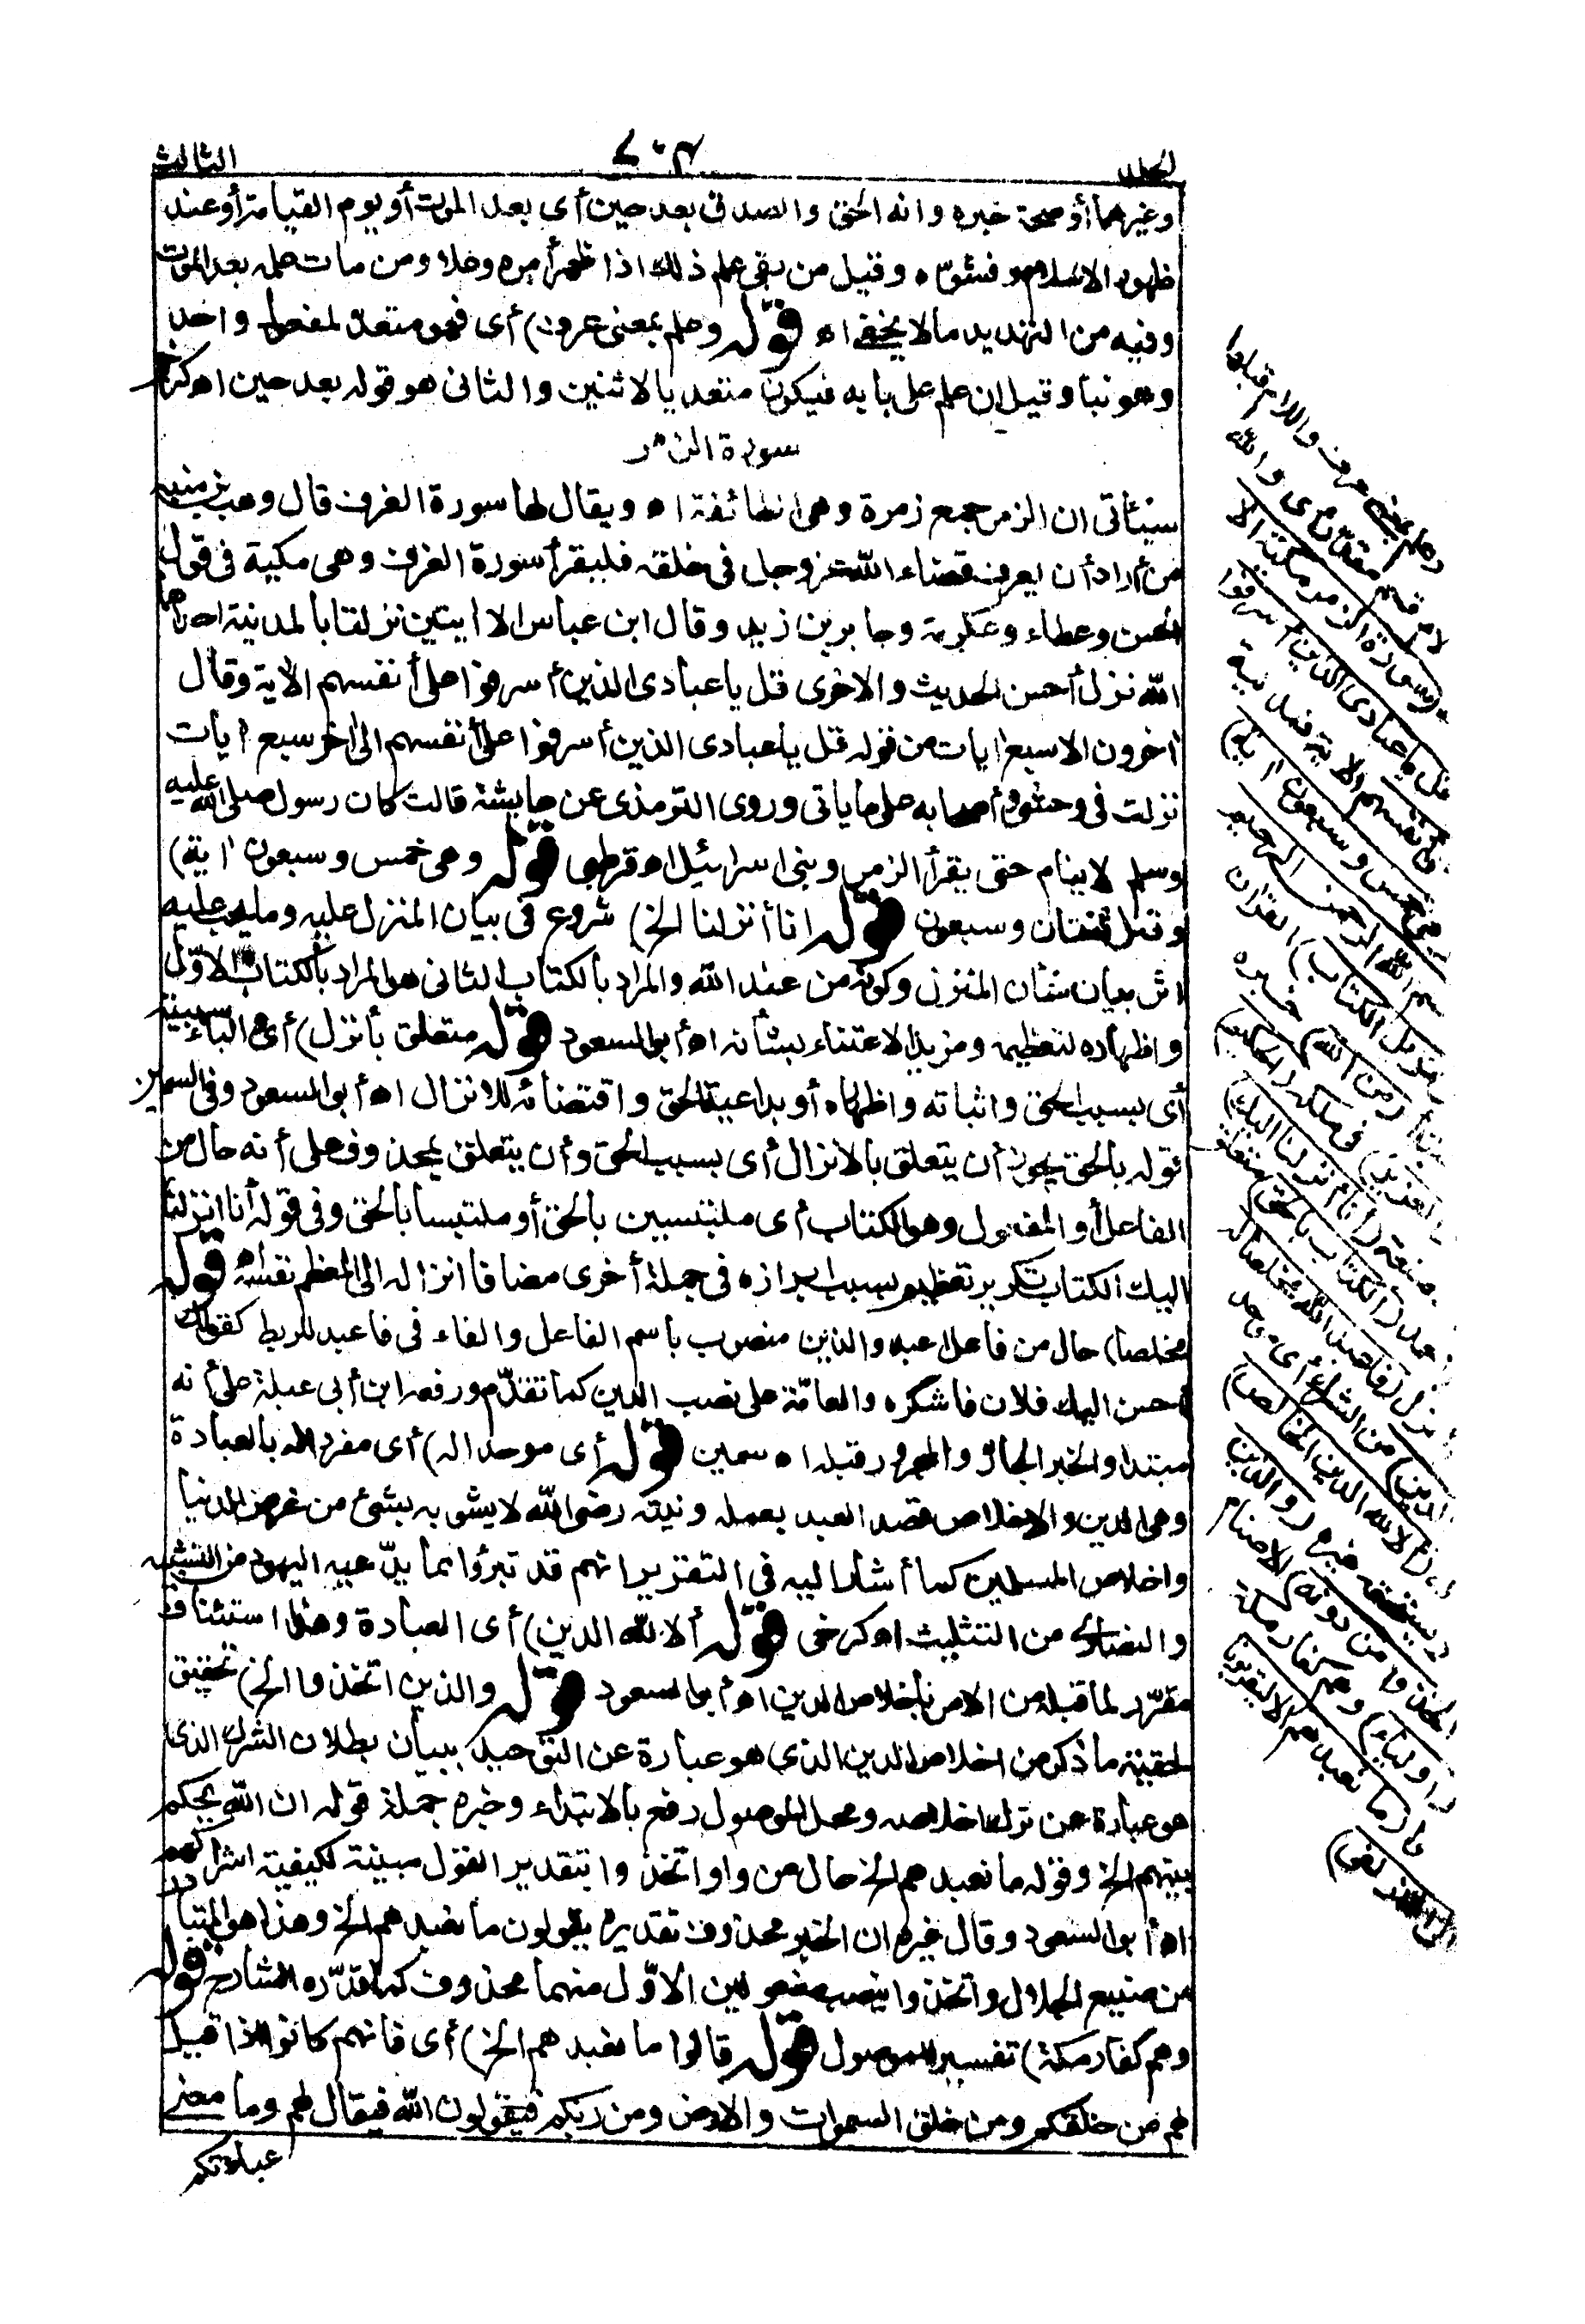 المجلد
٧٠٣
الثالث
وغيرهما أو صحة خبره وانه الحق والصدق بعد حين أى بعد الموت أو يوم القيامة أو عند
ظهور الاسلام وفشوّه وقيل من بقى علم ذلك اذا ظهر أمره وعلا ومن مات علمه بعد الموت
وفيه من التهديد مالا يخفى اه قوله وعلم بمعنى عرف) أى فهو متعد لمفعول واحد
وهو نبأ وقيل ان علم على بابه فيكون متعديا لاثنين والثانى هو قوله بعد حين اه كرخى
سورة الزمر
سيأتى ان الزمر جمع زمرة وهى الطائفة اه ويقال لها سورة الغرف قال وهب بن منبه
من أراد أن يعرف قضاء الله عز وجل فى خلقه فليقرأ سورة الغرف وهى مكية فى قول
الحسن وعطاء وعكرمة وجابر بن زيد وقال ابن عباس الا ايتين نزلتا بالمدينة احداهما
الله نزل أحسن الحديث والاخرى قل يا عبادى الذين أسرفوا على أنفسهم الاية وقال
اخرون الا سبع ايات من قوله قل يا عبادى الذين أسرفوا على أنفسهم الى اخر سبع ايات
نزلت فى وحشى وأصحابه على ما ياتى وروى الترمذى عن عايشة قالت كان رسول صلى الله عليه
وسلم لا ينام حتى يقرأ الزمر وبنى اسرائيل اه قرطبى قوله وهى خمس وسبعون اية)
وقيل ثنتان وسبعون قوله انا أنزلنا الخ) شروع فى بيان المنزل عليه وما يجب عليه
اثر بيان شأن المنزل وكونه من عند الله والمراد بالكتاب الثانى هو المراد بالكتاب الاوّل
واظهاره لتعظيمه ومزيد الاعتناء بشأنه اه أبو السعود قوله متعلق بأنزل) أى والباء سببية
أى بسبب الحق واثباته واظهاره أو بداعية الحق واقتضائه للانزال اه أبو السعود وفى السمين
قوله بالحق يجوز أن يتعلق بالانزال أى بسبب الحق وأن يتعلق بمحذوف على أنه حال من
الفاعل أو المفعول وهو الكتاب أى ملتبسين بالحق أو ملتبسا بالحق وفى قوله أنا انزلنا
اليك الكتاب تكرير تعظيم بسبب ابرازه فى جملة أخرى مضافا انزاله الى المعظم نفسه اه قوله
مخلصا) حال من فاعل اعبد والدين منصوب باسم الفاعل والفاء فى فاعبد للربط كقولك
أحسن اليك فلان فاشكره والعامّة على نصب الدين كما تقدّم ورفعه ابن أبى عبلة على أنه
مبتدا والخبر الجار والمجرور قبله اه سمين قوله أى موحدا له) أى مفرد الله بالعبادة
وهى الدين والاخلاص قصد العبد بعمله ونيته رضى الله لا يشوبه بشئ من غرض الدنيا
واخلاص المسلمين كما أشار اليه فى التقرير انهم قد تبرؤا مما يدّعيه اليهود من التشبيه
والنصارى من التثليث اه كرخى قوله ألا لله الدين) أى العبادة وهذا استئناف
مقرّر لما قبله من الامر باخلاص الدين اه أبو السعود قوله والذين اتخذوا الخ) تحقيق
لحقية ما ذكر من اخلاص الدين الذى هو عبارة عن التوحيد ببيان بطلان الشرك الذى
هو عبارة عن ترك اخلاصه ومحل الموصول رفع بالابتداء وخبره جملة قوله ان الله يحكم
بينهم الخ وقوله ما نعبدهم الخ حال من واو اتخذوا بتقدير القول مبينة لكيفية اشراكهم
اه أبو السعود وقال غيره ان الخبر محذوف تقديره يقولون ما نعبدهم الخ وهذا هو المتبادر
من صنيع الجلال واتخذوا ينصب مفعولين الاوّل منهما محذوف كما قدّره الشارح قوله
وهم كفار مكة) تفسير للموصول قوله قالوا ما نعبدهم الخ) أى فانهم كانوا اذا قيل
لهم من خلقكم ومن خلق السموات والارض ومن ربكم فيقولون الله فيقال لهم وما معنى
عبادتكم
وعلم بمعنى عرف واللام قبلها
لام قسم مقدّر أى والله
سورة الزمر مكية الا
قل يا عبادى الذين أسرفوا
على أنفسهم الاية فمدنية
وهى خمس وسبعون اية)
بسم الله الرحمن الرحيم
تنزيل الكتاب) القران
مبتدأ (من الله) خبره
(العزيز) فى ملكه (الحكيم)
فى صنعه (انا أنزلنا اليك)
يا محمد (الكتاب بالحق) متعلق
بأنزل (فاعبد الله مخلصا له
الدين) من الشرك أى موحد
اله (ألا لله الدين الخالص)
لا يستحقه غيره (والذين
اتخذوا من دونه) الاصنام
(أولياء) وهم كفار مكة
قالوا (ما نعبدهم الا ليقربونا
الى الله زلفى)